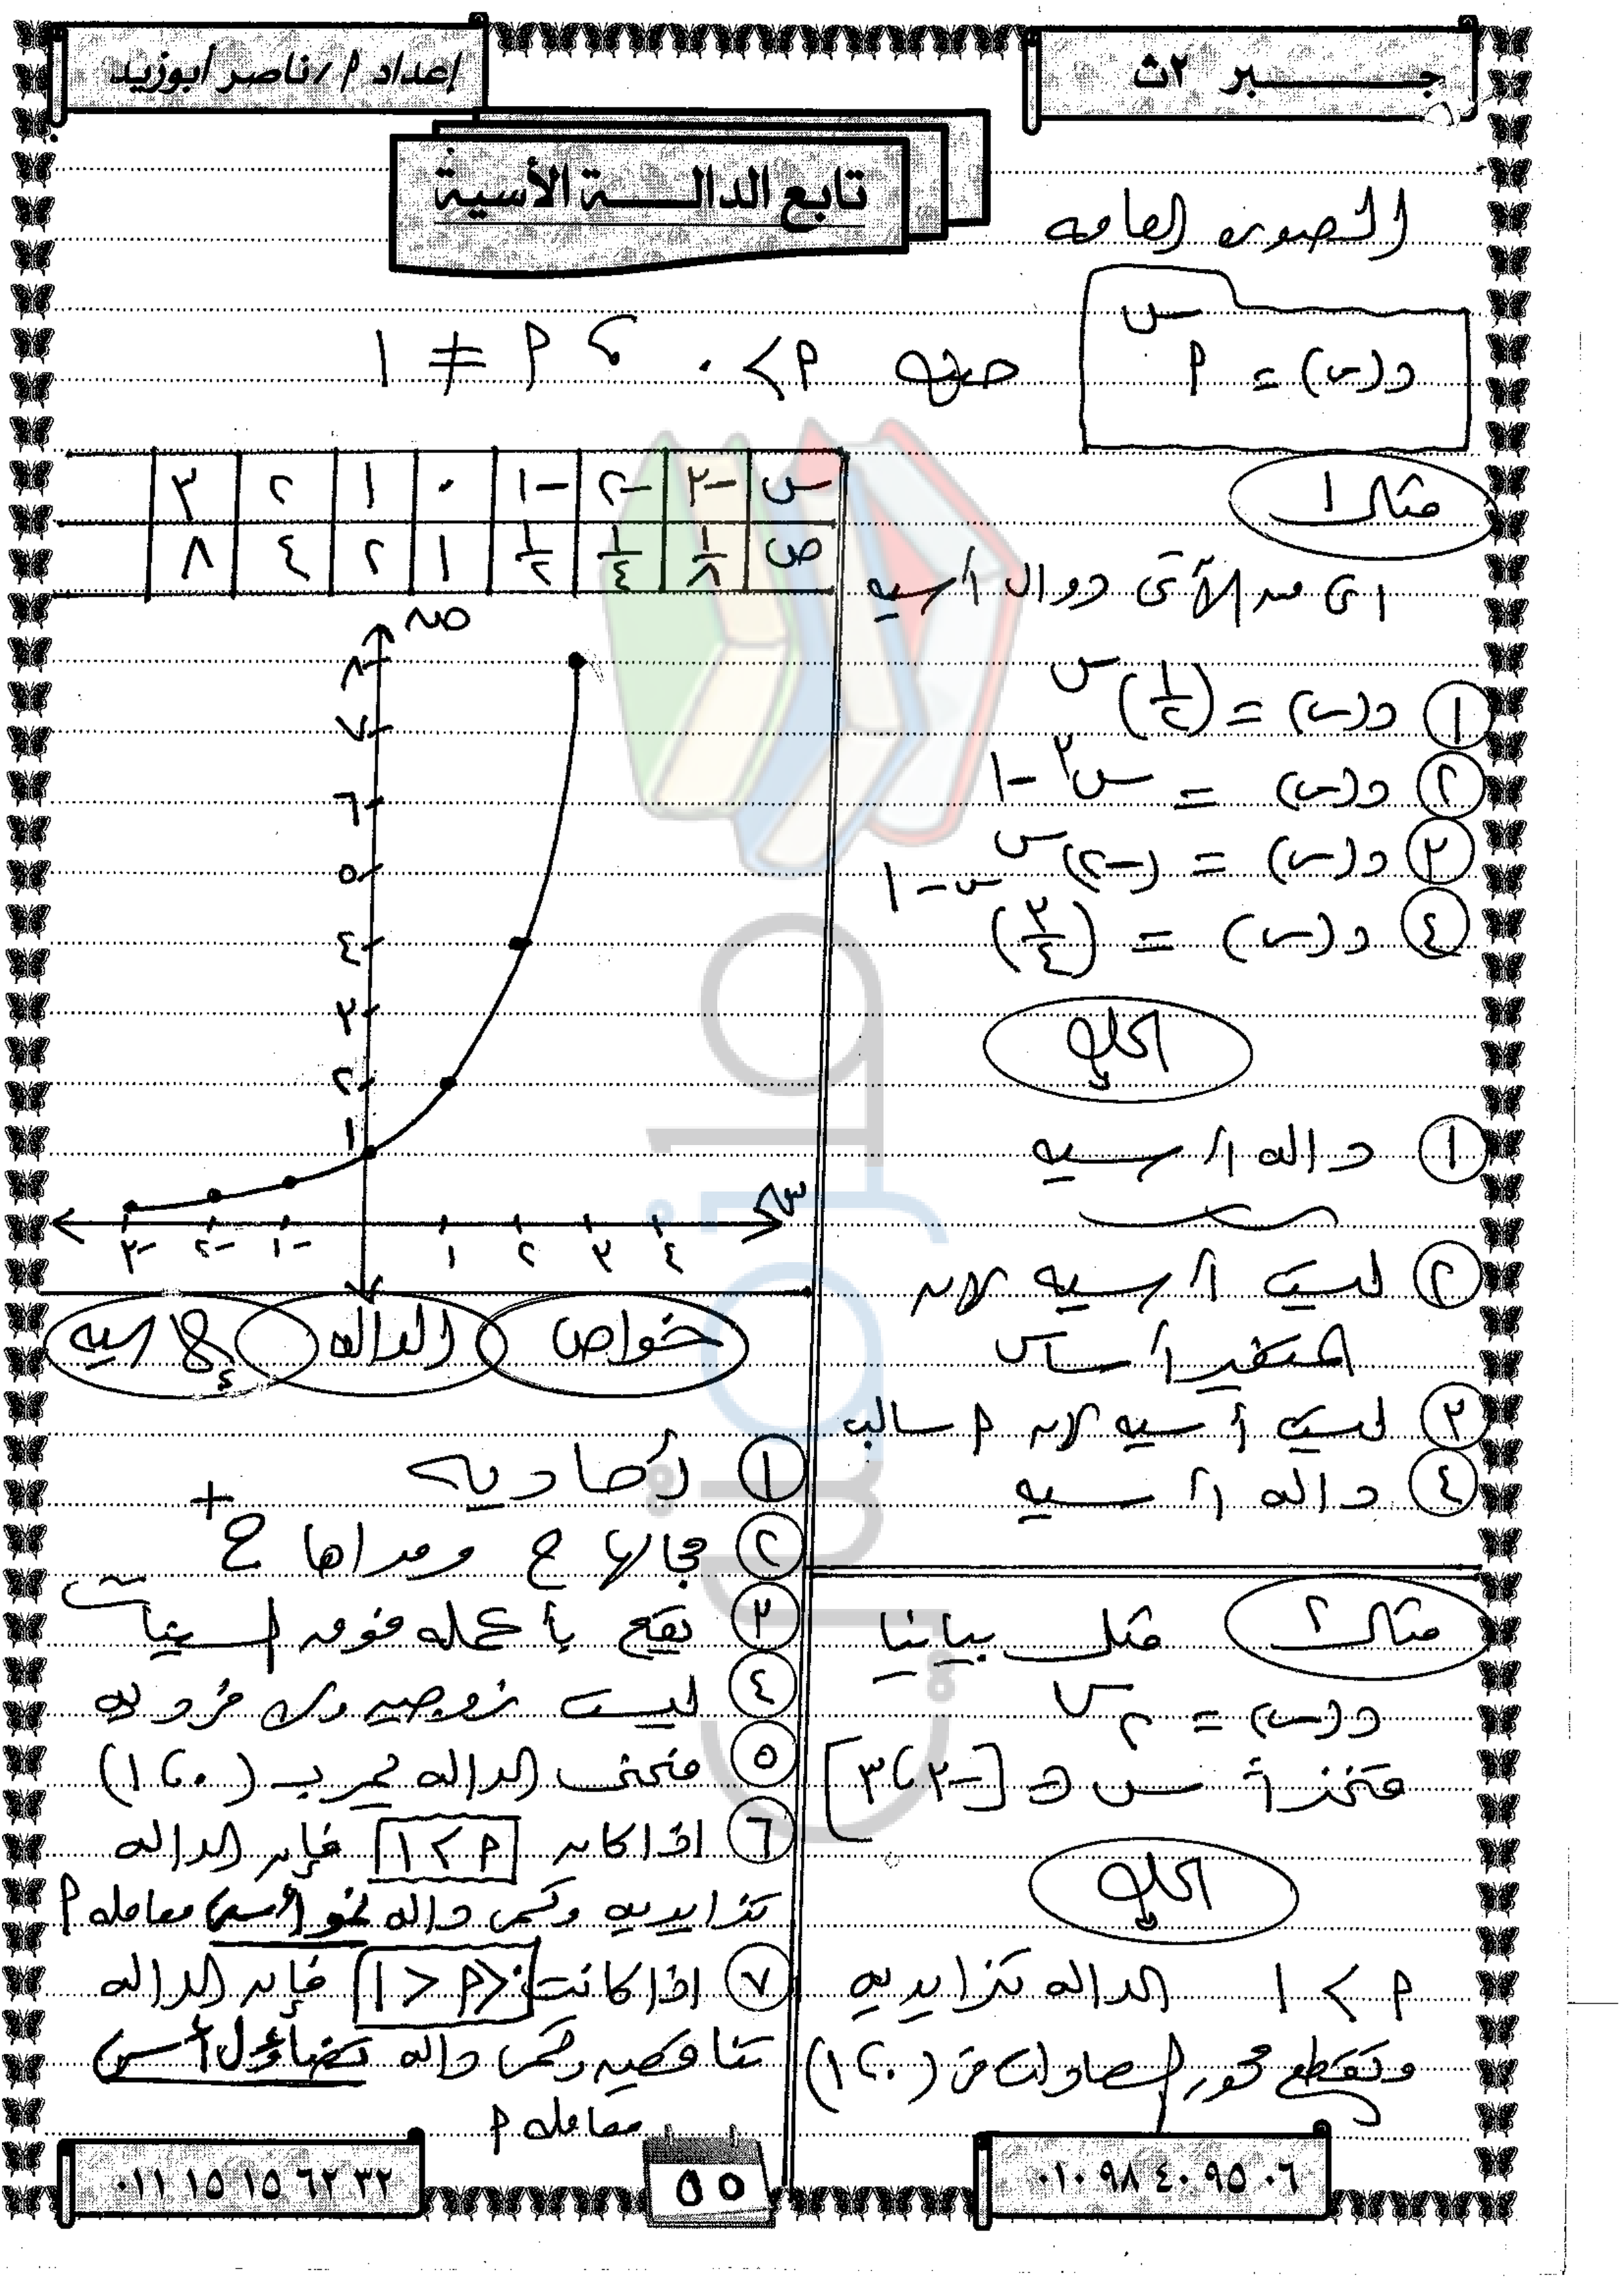 جبر ٢ث
إعداد م/ناصر أبوزيد
تابع الدالة الأسية
الصوره العامه
د(س) = م^س
حيث م > ٠ ، م ≠ ١
مثال ١
اى من الآتى دوال أسيه
① د(س) = (١/٢)^س
② د(س) = س^٣ - ١
③ د(س) = (-٢)^س
④ د(س) = (٣/٤)^(س-١)
الحل
① داله أسيه
② ليست أسيه لان
المتغير أساس
③ ليست أسيه لان م سالب
④ داله أسيه
مثال ٢ مثل بيانيا
د(س) = ٢^س
متخذاً س ∈ [-٣، ٣]
الحل
م > ١ الداله تزايديه
وتقطع محور الصادات فى (٠، ١)
س -٣ -٢ -١ ٠ ١ ٢ ٣
ص ١/٨ ١/٤ ١/٢ ١ ٢ ٤ ٨
ص
٨
٧
٦
٥
٤
٣
٢
١
س
-٣ -٢ -١ ١ ٢ ٣ ٤
خواص الداله الأسيه
① أحاديه
② مجالها ح ومداها ح+
③ تقع بأكمله فوق السينات
④ ليست زوجيه ولا فرديه
⑤ منحنى الداله يمر بـ (٠، ١)
⑥ اذا كان م > ١ فإن الداله
تزايديه وتسمى داله نمو أسى معامله م
⑦ اذا كانت ٠ < م < ١ فإن الداله
تناقصيه وتسمى داله تضاؤل أسى
معامله م
٠١١ ١٥ ١٥ ٦٢ ٣٢
٥٥
٠١٠ ٩٨ ٤٠ ٩٥ ٠٦